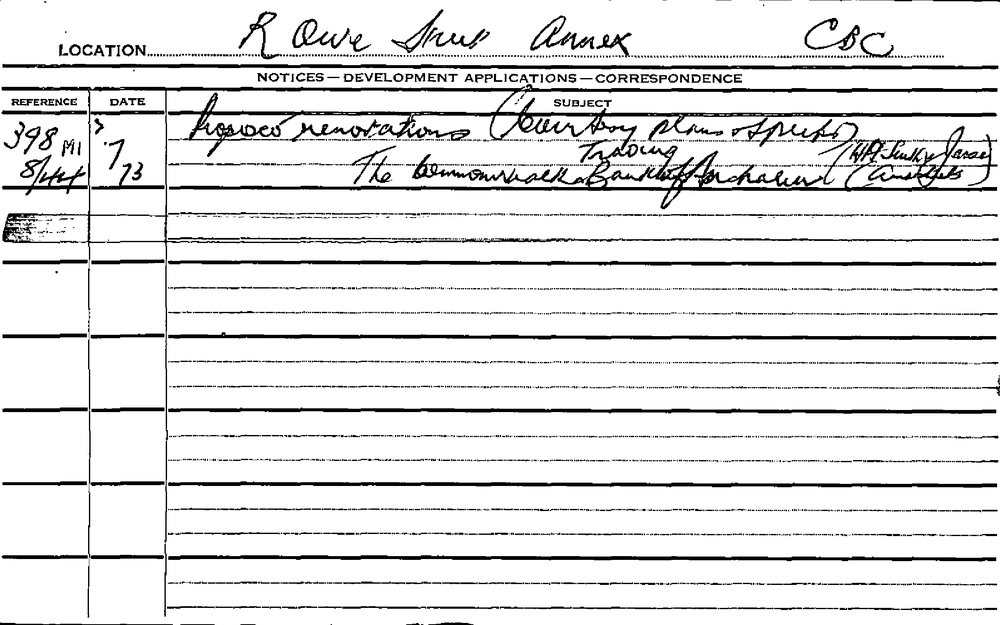 LOCATION R Owe Street Annex CBC
NOTICES — DEVELOPMENT APPLICATIONS — CORRESPONDENCE
REFERENCE DATE SUBJECT
398 M1 3 Proposed renovations (Courtesy plans & specs)
8/44 /7 Trading
/73 The Commonwealth Bank of Australia